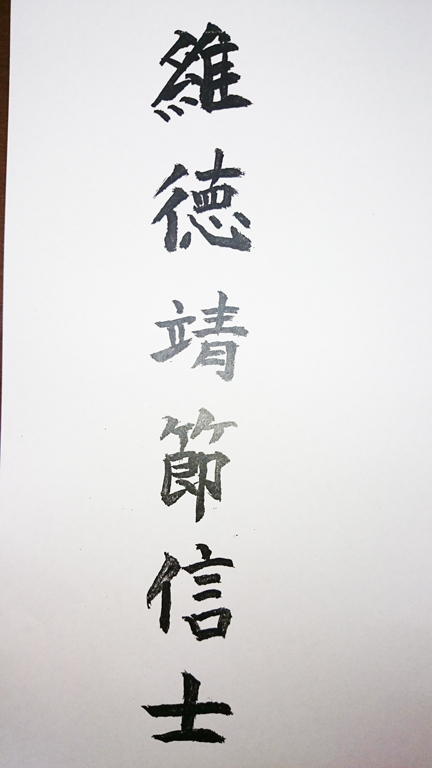 維徳靖節信士